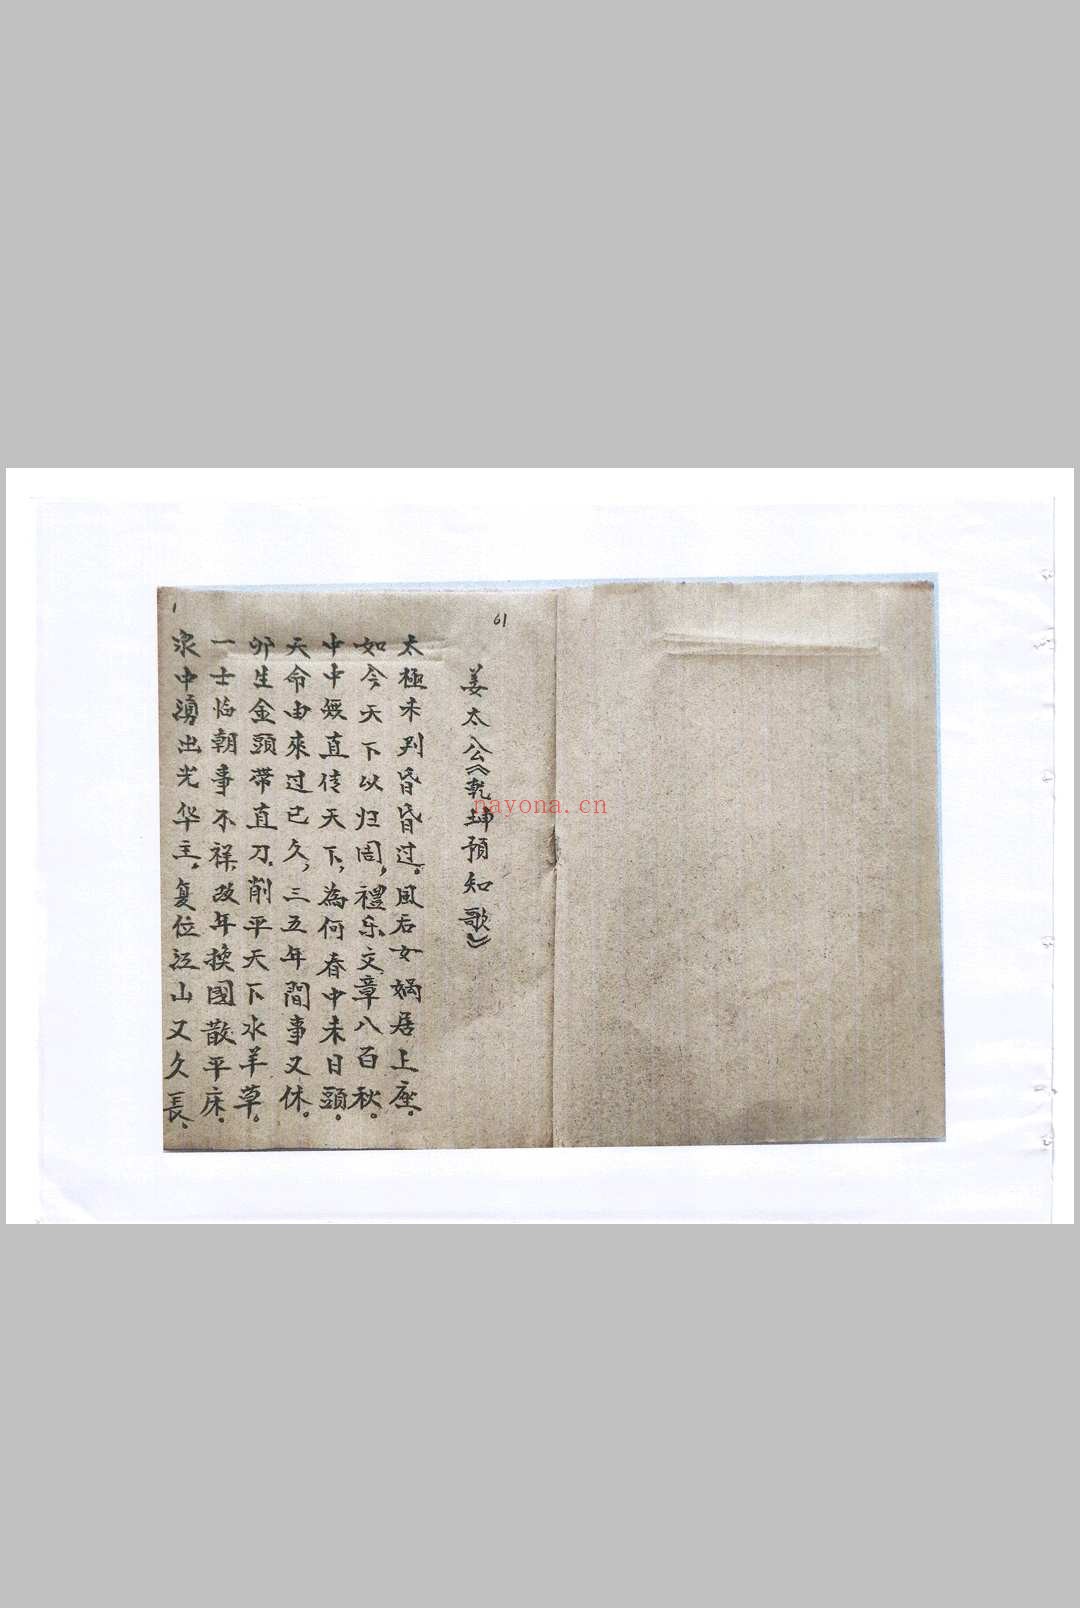 61
姜太公《乾坤預知歌》
太極未判昏昏过。風后女媧居上座。
如今天下以归周，禮乐文章八百秋。
中直传天下，為何春中未日頭。
天命由來过已久，三五年間事又休。
卯生金頭帶直刀，削平天下水羊草。
一士臨朝事不祥，改年換國散平床。
泉中湧出光华主，复位江山又久長。
1
nayona.cn